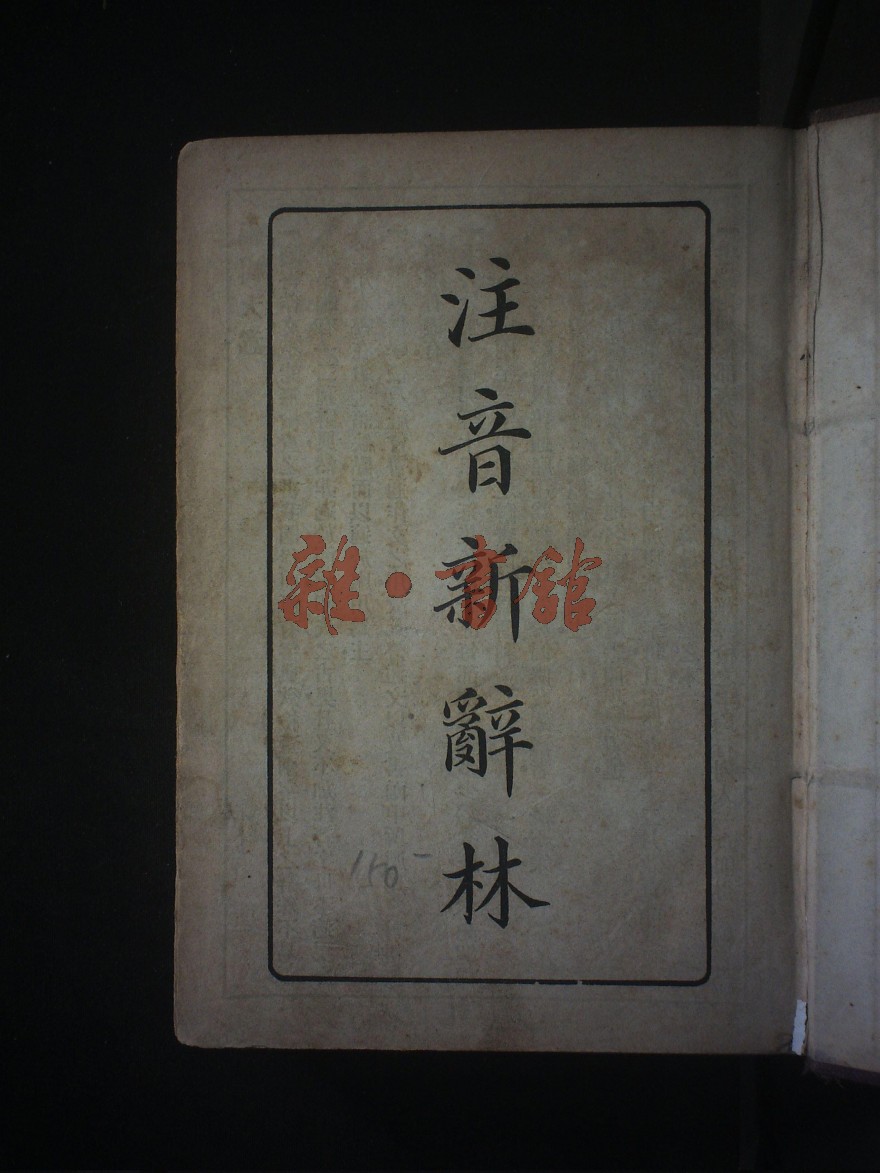 注音新辭林
雜·書館
150-